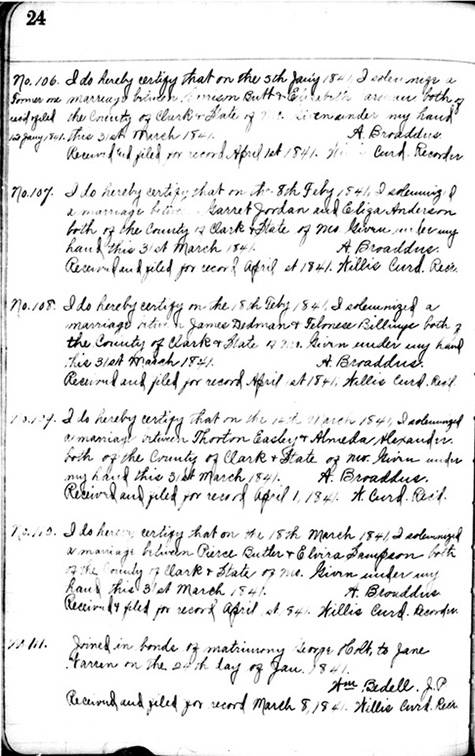 24
No. 106. I do hereby certify that on the 5th Jany 1841, I solemnize a
Former one marriage between Harrison Butt & Elizabeth both of
recd & filed the County of Clark & State of Mo. Given under my hand
12 Jany 1841. this 31st March 1841. A. Broaddus.
Received and filed for record April 1st 1841. Willis Curd. Recorder
No. 107. I do hereby certify that on the 8th Feby 1841, I solemnized
a marriage between Garret Jordan and Eliza Anderson
both of the County of Clark & State of Mo Given under my
hand this 31st March 1841. A. Broaddus.
Received and filed for record April 1st 1841. Willis Curd. Recr.
No. 108. I do hereby certify on the 18th Feby 1841, I solemnized a
marriage between James Dedman & Billings both of
the County of Clark & State of Mo. Given under my hand
this 31st March 1841. A. Broaddus.
Received and filed for record April 1st 1841. Willis Curd. Rec'd.
No. 109. I do hereby certify that on the 14th March 1841, I solemnized
a marriage between Thorton Easley & Almeda Alexander
both of the County of Clark & State of Mo. Given under
my hand this 31st March 1841. A. Broaddus.
Received and filed for record April 1, 1841. W. Curd. Rec'd.
No. 110. I do hereby certify that on the 18th March 1841, I solemnized
a marriage between Pierce Butler & Elvira Sampson both
of the County of Clark & State of Mo. Given under my
hand this 31st March 1841. A. Broaddus
Received & filed for record April 1st 841. Willis Curd. Recorder
No. 111. Joined in bonds of matrimony George Holt, to Jane
Warren on the 24th day of Jan. 1841.
Wm Bedell. J.P
Received and filed for record March 8, 1841. Willis Curd. Recr